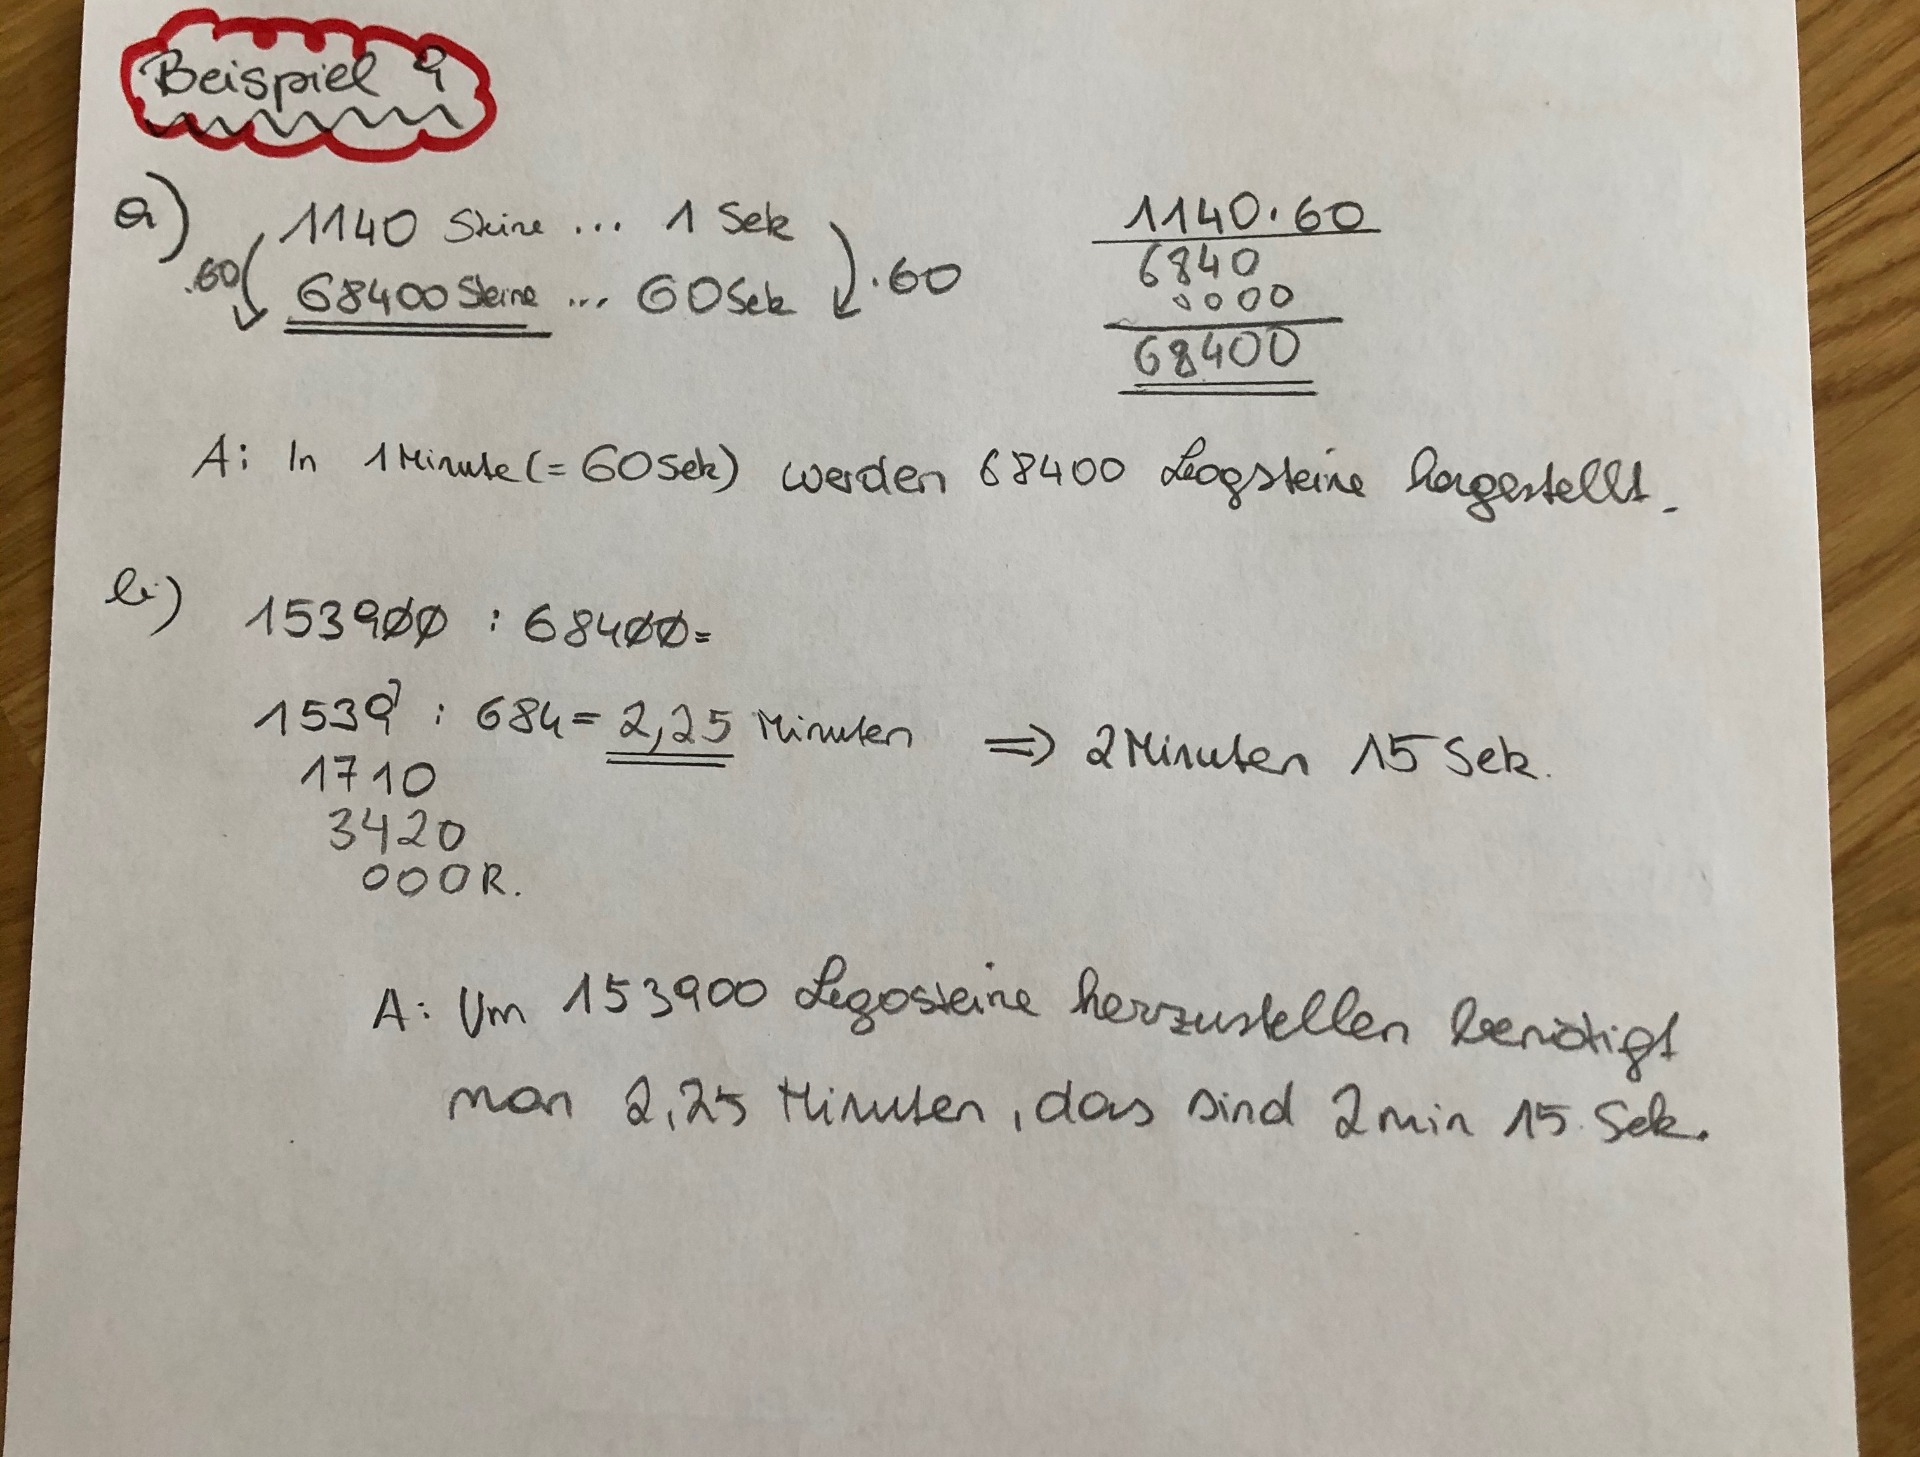 Beispiel 9
a) 1140 Steine ... 1 Sek
.60 68400 Steine ... 60 Sek .60
1140 · 60
6840
0000
68400
A: In 1 Minute (= 60 Sek) werden 68400 Leogsteine hergestellt.
b) 153900 : 68400 =
1539 : 684 = 2,25 Minuten => 2 Minuten 15 Sek.
1710
3420
000 R.
A: Um 153900 Legosteine herzustellen benötigt
man 2,25 Minuten, das sind 2 min 15 Sek.